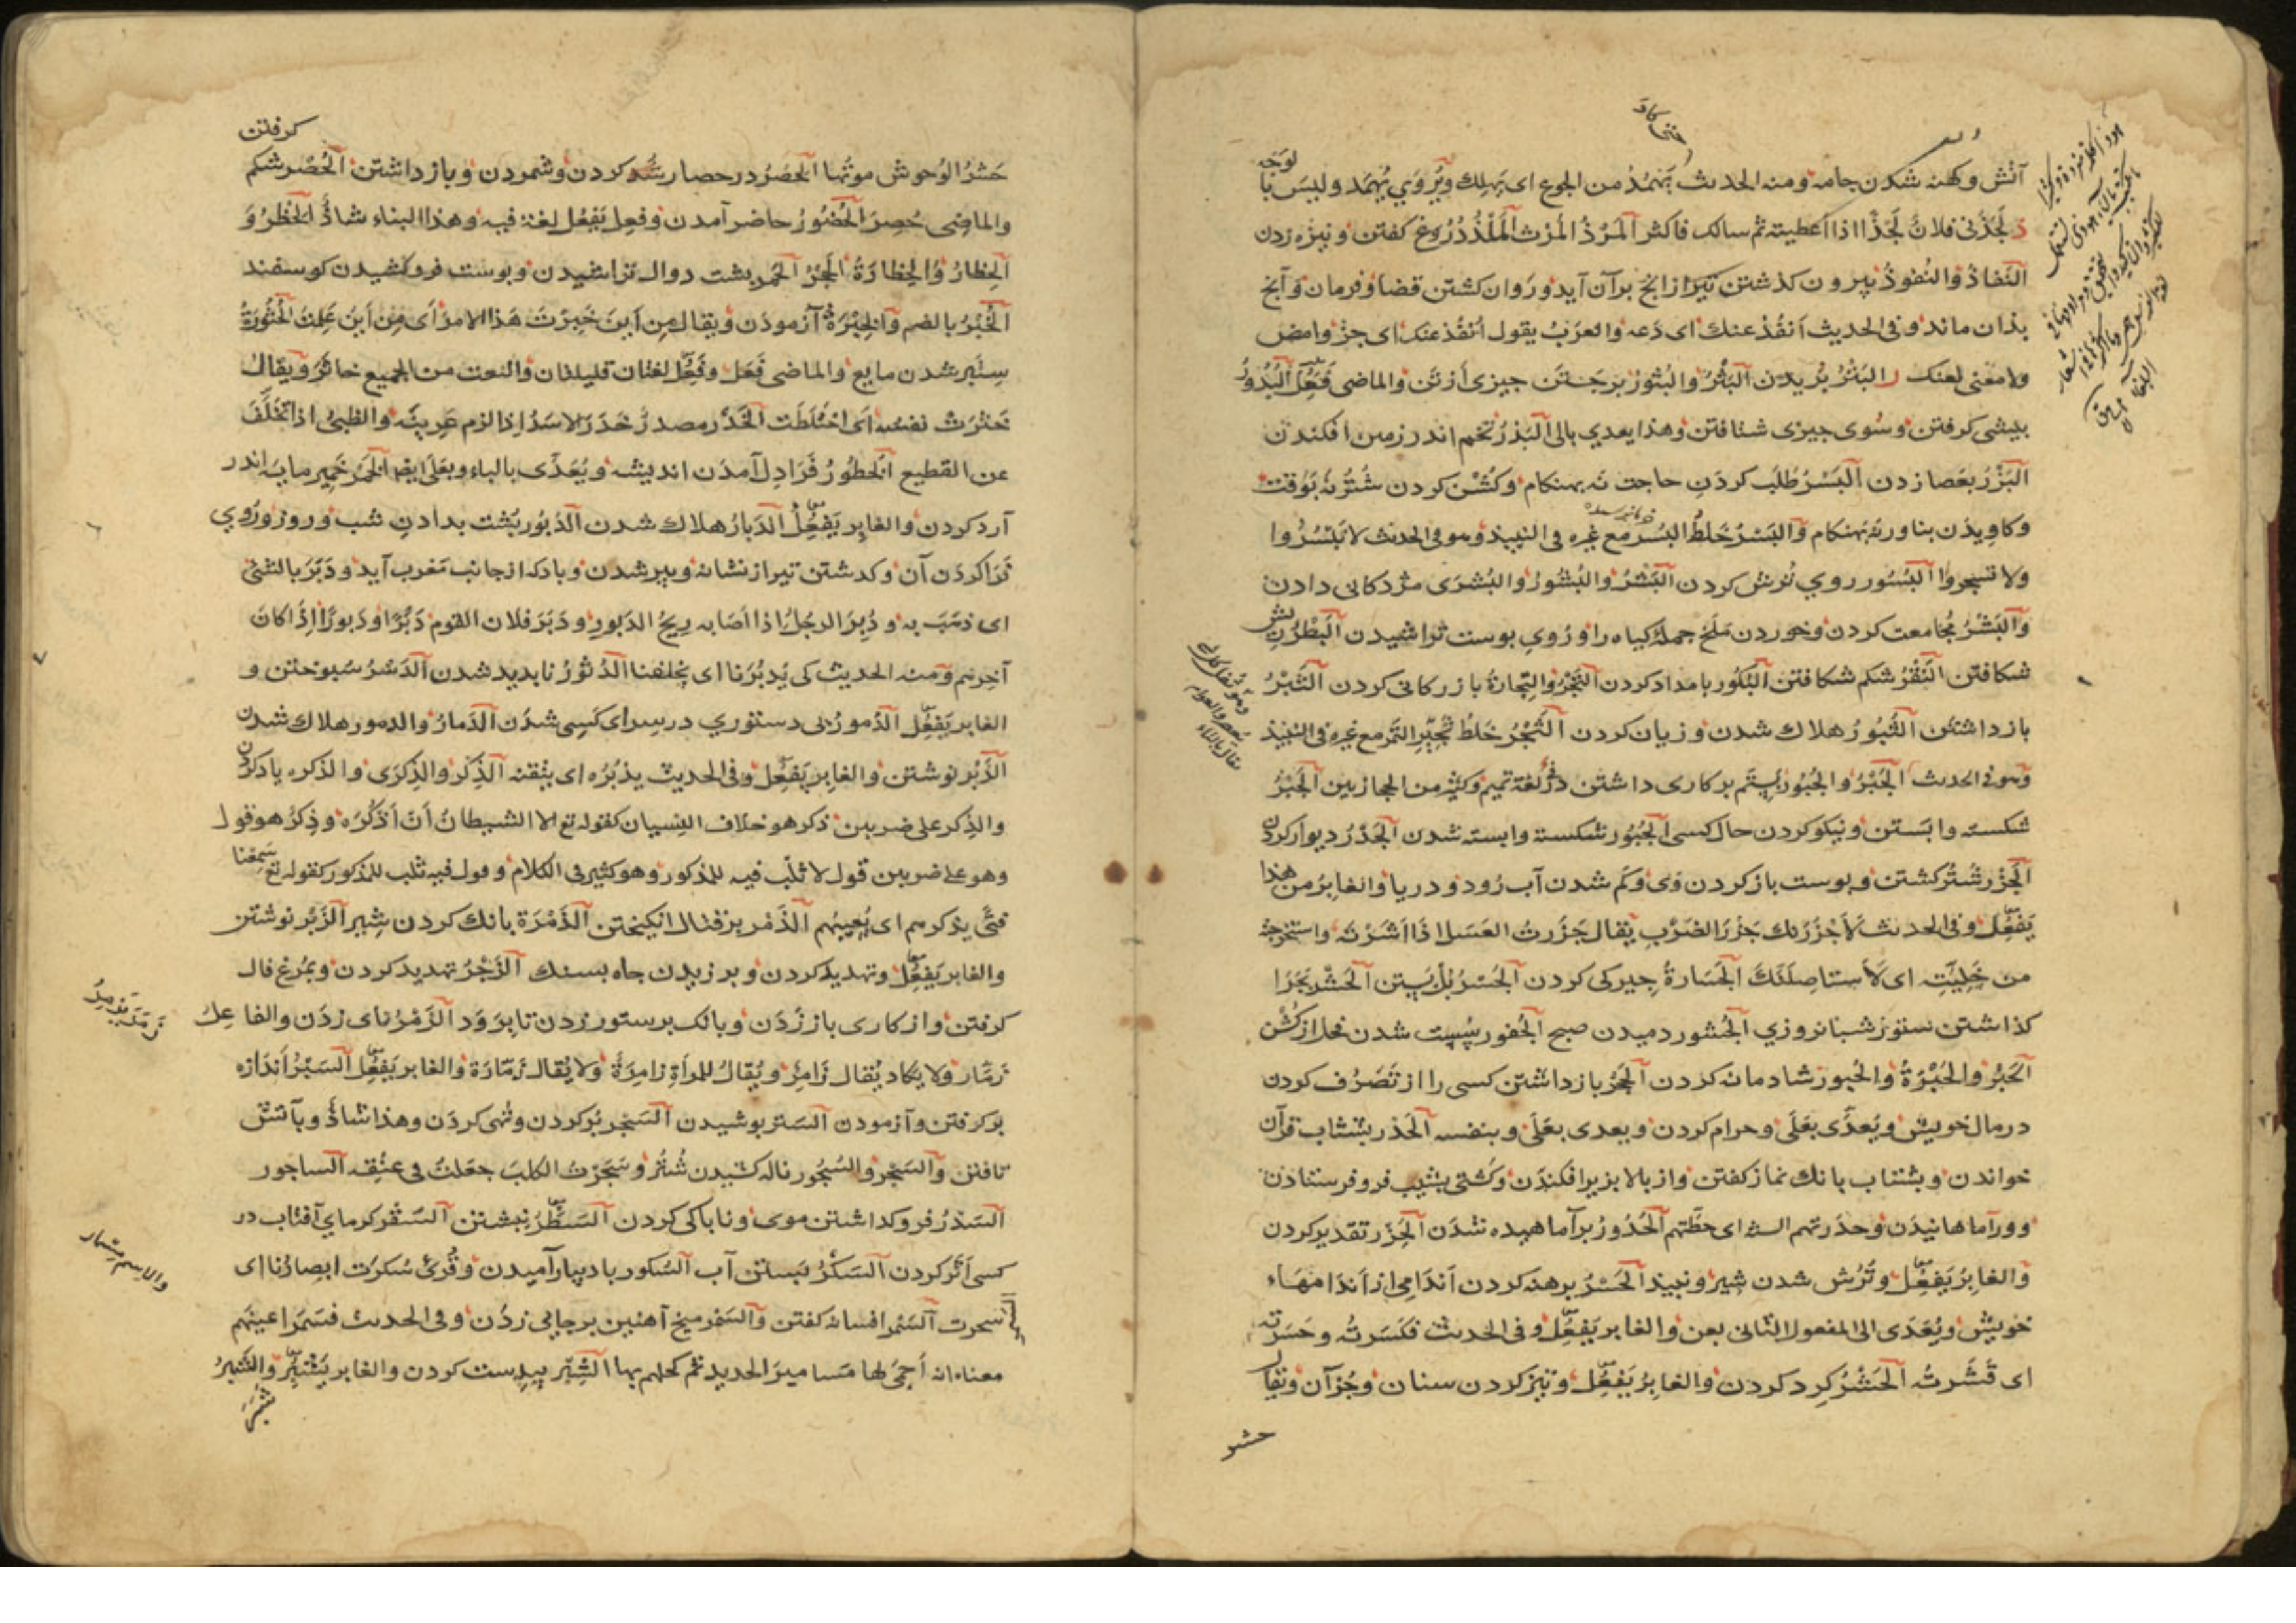 آتش وکهنه شدن جامه ومنه الحدیث یَهْمُدُ من الجوع ای یَهلِك ویُروی یُهْمَد ولیسَ با لوَجَه
ذ لَجَذَنی فلانٌ لَجْذًا اذا اَعطیته ثم سالك فاکثر اَلمَرْذُ المَرْث اَلمَلْذُ دُرُوغ کفتن ونیزه زدن
النَفاذُ والنُفوذُ بیرون کذشتن تیر از انچ بر آن آید ورَوان کشتن قضا وفرمان وآنچ
بذان ماند وفی الحدیث اَنفُذ عنك ای دَعه والعرَبُ یقول اُنفُذ عنك ای جُزْ وامض
ولا معنی لعنك ر البَتْرُ بُریدن اَلبَثْرُ والبُثوُر بَرجَستن چیزی اَز تَن والماضی فَعُِلَ اَلبُدُورُ
بیشی کرفتن وسُوی چیزی شتافتن وهذا یعدی بالی اَلبَذْرُ تخم اندر زمین افکندن
البَزْرُ بعَصا زدن اَلبَسْرُ طَلَب کردَنِ حاجت نَه بهنکام وکُشْن کردن شتُر نَه بَوَقت
وکاویدَن بناور نه بَهنکام وَالبَسْرُ خَلطُ البُسْر مع غیره فی النبیذ وهو فی الحدیث لا تَبْسُرُوا
ولا تسجروا اَلبُسُور روی تُرش کردن اَلبَشْرُ والبُشُورُ والبُشرَی مژدکانی دادن
وَالبَشْرُ مُجامعت کردن وخوردن مَلَخ جملهٔ کیاه را ورُویِ بوست تراشیدن اَلبَطْرُ نیشتر
شکافتن اَلبَقْرُ شکم شکافتن اَلبُکُور بامداد کردن اَلتَجْرُ والتِجارَةُ بازرکانی کردن اَلثَبْرُ
بازداشتن اَلثُبُورُ هلاك شدن وزیان کردن اَلثَجْرُ خَلطُ ثَجِیرِ التَمر مع غیره فی النبیذ
وهو فی الحدیث اَلجَبْرُ والجُبُورُ بستَم بر کاری داشتن فی لغة تمیم وکثیر من الحجازیین اَلجَبْرُ
شکسته وابَستن ونیکو کردن حال کسی اَلجُبُور شکسته وابسته شدن اَلجَدْرُ دیوار کردن
اَلجَزْر شُتُر کشتن وبوست باز کردن وَی وکَم شدن آب رُود ودریا والغابِرُ من هذا
یَفعُِل وفی الحدیث لَاَجْزُرَنَّك جَزْرَ الضَرَب یُقال جَزَرتُ العَسَل اذا اَشَرْتَه واستخرجتَه
من خَلِیَّتِه ای لَاَستاصِلَنَّكَ اَلجَسَارةُ چیرکی کردن اَلجَسْرُ بُل بَستن اَلجَشْر بچَرا
کذاشتن ستور شبانروزی اَلجُشور دمیدن صبح اَلجُفور سُست شدن فحل از کُشْن
اَلحَبْرُ والحَبْرَةُ والحُبور شادمانه کردن اَلحَجْرُ بازداشتن کسی را از تَصَرُف کردن
در مال خویش ویُعدَّی بعَلَی وحرام کردن ویعدی بعَلَی وبنفسه اَلحَدْر بشتاب قرآن
خواندن وبشتاب بانك نماز کفتن واز بالا بزیر افکندَن وکَشتی بشیب فرو فرستادن
وورآماهانیدَن وحدَرتهم السنة ای حطَّتهم اَلحُدُورُ برآماهیده شدن اَلحَزْر تقدیر کردن
والغابرُ یَفعُِل وتُرُش شدن شیر ونبیذ اَلحَسْرُ برهنه کردن اَندَامی از اَندامهاء
خویش ویُعَدَی الی المفعول الثانی بعن والغابر یَفعُِل وفی الحدیث فکَسَرتُه وحَسَرته
ای قَشَرتُه اَلحَشْرُ کرد کردن والغابِرُ یَفعُِل وتیز کردن سنان وجُز آن ویُقال
حشر
کرفتن
حَشْرُ الوُحوش موتُها اَلحَصْرُ در حصار کردن وشمردن وبازداشتن اَلحُصْر شکم
والماضِی حُصِرَ اَلحُضُورُ حاضر آمدن وفعِل یَفعُل لغة فیه وهذا البناء شاذٌّ اَلحَظْرُ وَ
اَلحِظارُ والحِظارَةُ اَلحَجْرُ اَلحَمْر بشت دوال تراشیدن وبوست فروکشیدن کوسفند
اَلخُبْرُ بالضم والخِبْرَةُ آزمودَن ویقال مِن اَینَ خَبِرْتَ هَذا الامرَ اَی مِن اَینَ عَلِمْتَ اَلخُثُورَةُ
سِتَبر شدن مایع والماضی فَعَل وفَعُِلَ لغتان قلیلتان والنعت من الجمیع خاثِرٌ وَیقالُ
خَثَرتْ نفسُه اَی اختَلَطَت اَلخَدْر مصدرُ خَدَرَ الاسَدُ اِذا لزم عَرِینَه والظبیُ اذا تخَلَّفَ
عن القطیع اَلخُطُورُ فَرَا دِل آمدَن اندیشه ویُعَدَّی بالباء وبعَلَی ایضا اَلخَمْر خَمِیر مایه اندر
آرد کردن والغابِر یَفعُِل اَلدَبارُ هلاك شدن اَلدُبُور بَشت بدادن شب وروز ورُوی
فَرَا کردَن آن وکدشتن تیر از نشانه وپیر شدن وباد که از جانب مَغرب آید ودَبَرَ بالشئ
ای ذهَبَ به ودُبِرَ الرجلُ اذا اَصَابه رِیحُ الدَبورِ ودَبَرَ فلان القوم دَبْرًا ودَبورًا اِذا کانَ
آخِرهم ومنه الحدیث کی یُدبُرَنا ای یخلفنا اَلدُثُورُ نابدید شدن اَلدَسْرُ سَبوختن و
الغابر یَفعُِل اَلدُمورُ بی دستوری در سِرای کَسی شدَن اَلدَمارُ والدمور هلاك شدن
اَلذَبْر نوشتن والغابِر یَفعُِل وفی الحدیث یذبُرُه ای یتقنه اَلذِکْرُ والذِکرَی والذکره یاد کردن
والذِکر علی ضربین ذکر هو خلاف النِسیان کقوله تع الا الشیطانُ اَنْ اَذْکُرَه وذِکرٌ هو قول
وهو علی ضربین قول لا ثَلْبَ فیه للمذکور وهو کثیر فی الکلام وقول فیه ثَلب للمذکور کقوله تع سَمِعْنا
فتًی یذکرهم ای یَعیبُهم اَلذَمْر بر قتال انکیختن اَلذَمْرَة بانك کردن شیر اَلزَبْر نوشتن
والغابر یَفعُِل وتهدید کردن وبرزیدن چاه بسنك اَلزَجْرُ تهدید کردن وبمُرغ فال
کرفتن واز کاری باز زَدَن وبانك بر ستور زدن تا برَوَد اَلزَمْرُ نای زدَن والفاعِلُ
زَمَّار ولا یکاد یُقال زَامِرٌ ویُقالُ للمراَةِ زامِرَةٌ ولا یُقال زَمَّارَة والغابر یَفعُِل اَلسَبْرُ اَندازه
برکرفتن وآزمودن اَلسَتر بوشیدن اَلسَجر بُر کردن وتُهی کردَن وهذا شاذٌّ وبآتش
تافتن وَالسَجْر والسُجُور ناله کشیدن شُتُر وسَجَرْتُ الکلبَ جعَلتُ فی عنُقِه اَلساجور
اَلسَدْرُ فروکداشتن موی وناباکی کردن اَلسَطْرُ نبشتن اَلسَقْر کرمای آفتاب در
کسی اَثر کردن اَلسَکْرُ بَبستن آب اَلسُکور باد بیارآمیدن وقُرئ سُکِرَت ابصارُنا ای
سحرت اَلسَمَر افسانه کفتن وَالسَمْر میخ آهنین بر جایی زدَن وفی الحدیث فسَمَر اعینَهم
معناه انه اَحمَی لها مَسامیرَ الحدید ثم کحلهم بها اَلشَبْر ببدست کردن والغابر یَشْبُِر والشَبْرُ
زَمَّر یُزَمِّرُ
والاسم مِسْمار